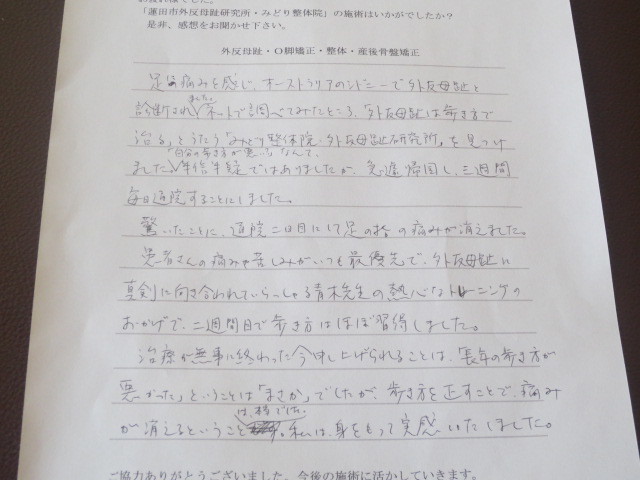 「蓮田市外反母趾研究所・みどり整体院」の施術はいかがでしたか？
是非、感想をお聞かせ下さい。
外反母趾・O脚矯正・整体・産後骨盤矯正
足に痛みを感じ、オーストラリアのシドニーで外反母趾と
診断されました。ネットで調べてみたところ、「外反母趾は歩き方で
治る」とうたう「みどり整体院・外反母趾研究所」を見つけ
ました。「自分の歩き方が悪い」なんて、半信半疑ではありましたが、急遽帰国し、三週間
毎日通院することにしました。
驚いたことに、通院二日目にして足の指の痛みが消えました。
患者さんの痛みや苦しみがいつも最優先で、外反母趾に
真剣に向き合われていらっしゃる青木先生の熱心なトレーニングの
おかげで、二週間目で歩き方はほぼ習得しました。
治療が無事に終わった今申し上げられることは、「長年の歩き方が
悪かった」ということは「まさか」でしたが、歩き方を正すことで、痛み
が消えるということは、私は、身をもって実感いたしました。
ご協力ありがとうございました。今後の施術に活かしていきます。